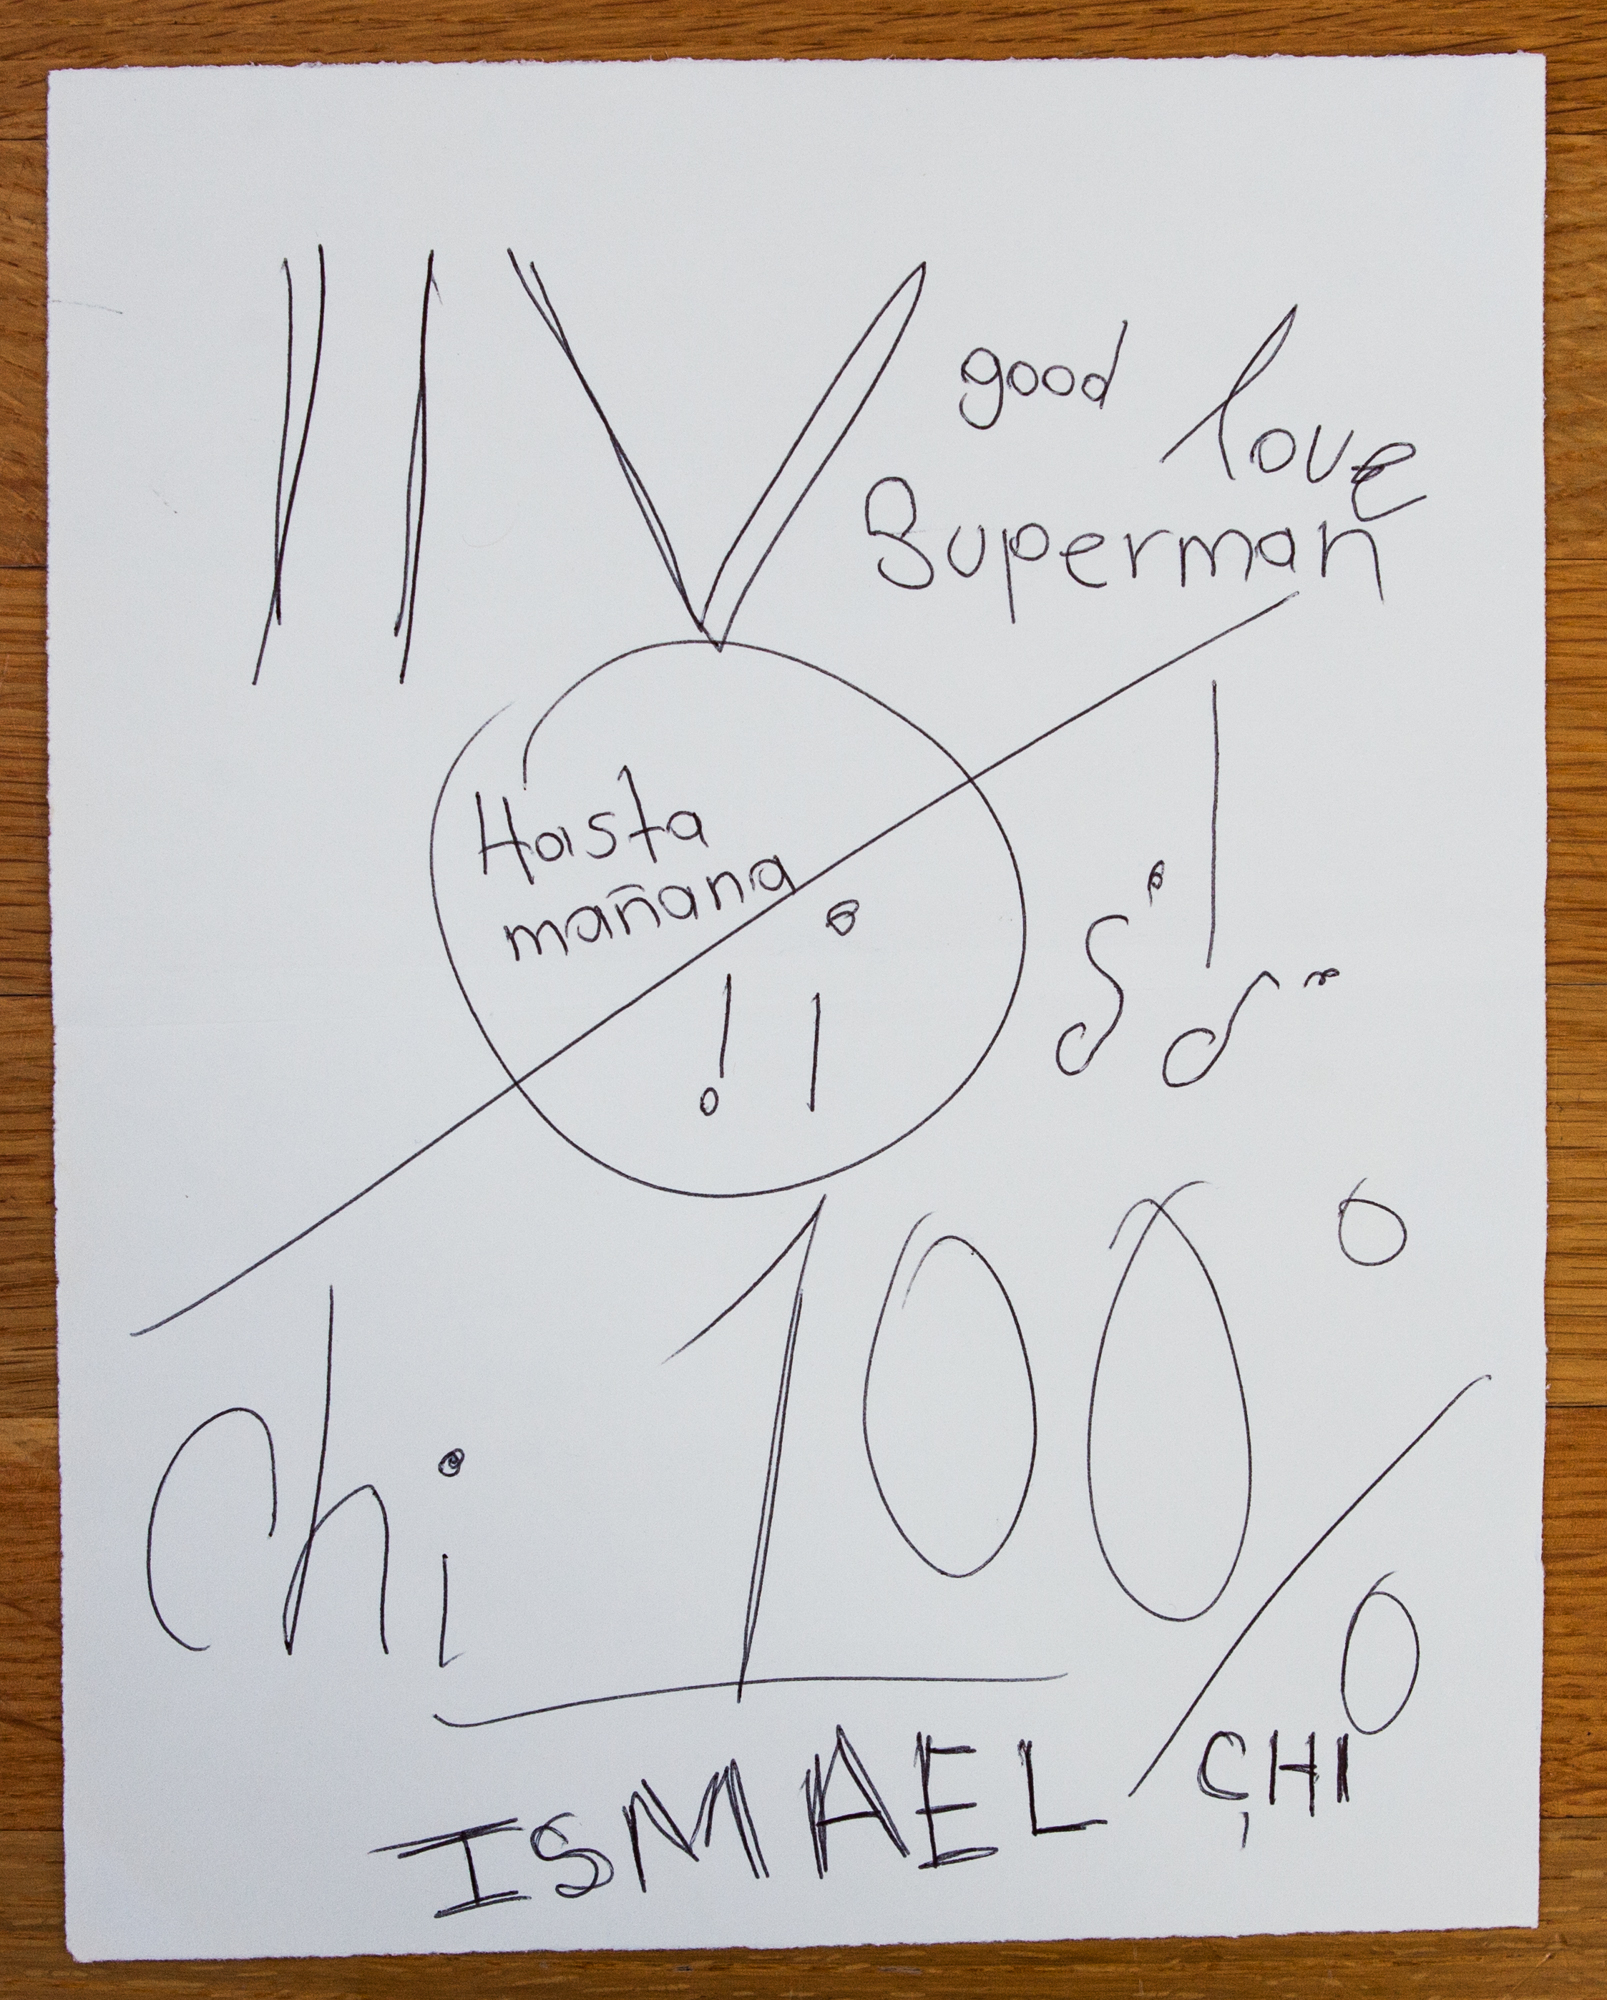 IIV
good love
Superman
Hasta
mañana
! i
chi 100%
ISMAEL ÇHI